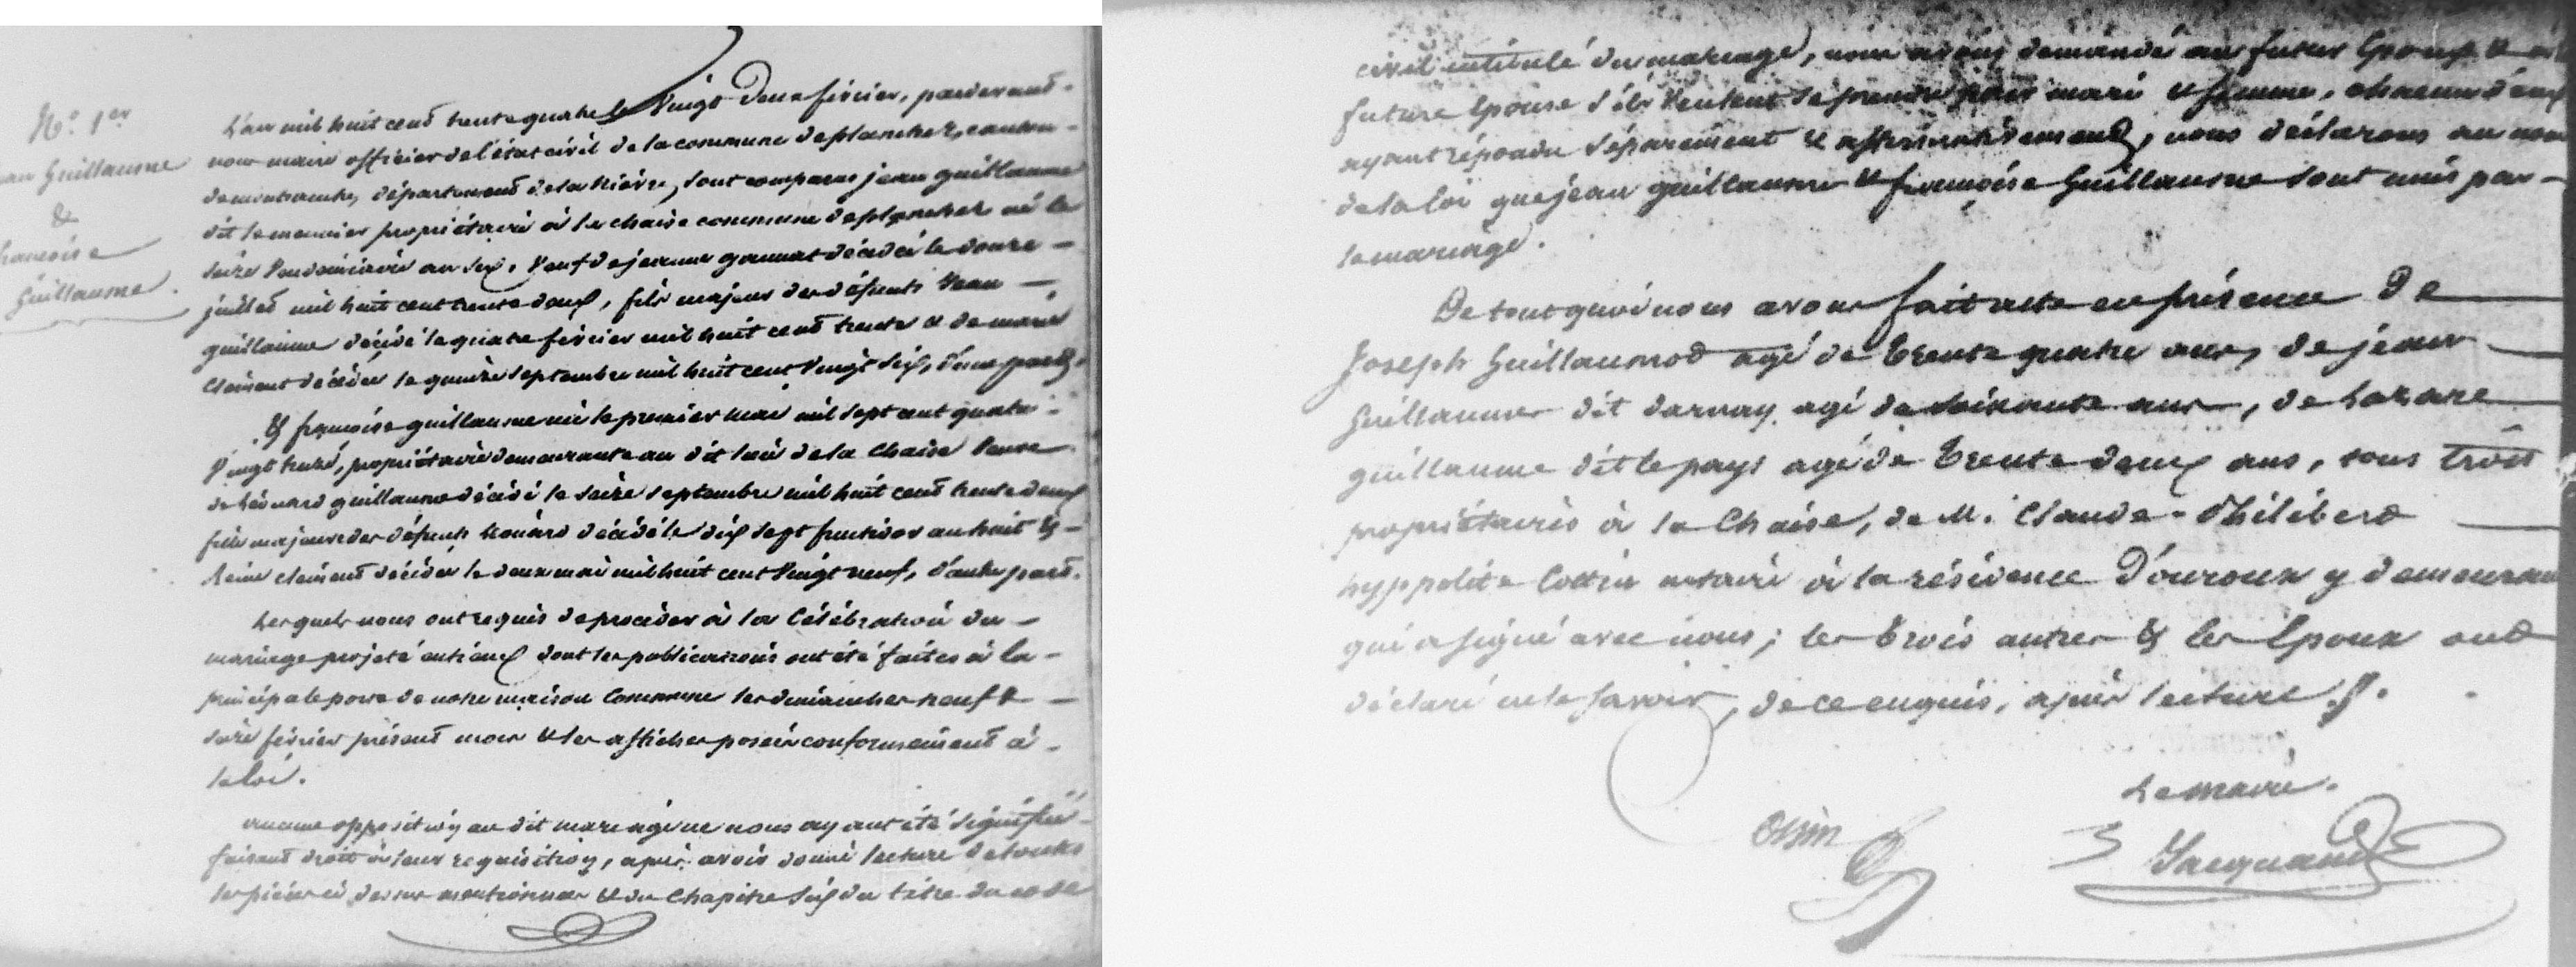 N.° 1er
Jean Guillaume
&
françoise
Guillaume.
L'an mil huit cent trente quatre le vingt deux février, pardevant
nous maire officier de l'état civil de la commune de planchez, canton
de montsauche, département de la Nièvre, sont comparus jean guillaume
dit le meunier propriétaire à la chaise commune de planchez né le
seize vendémiaire an six, veuf de jeanne gaunat décédée le douze
juillet mil huit cent trente deux, fils majeur des défunts Jean
guillaume décédé le quatre février mil huit cent trente & de marie
clément décédée le quinze septembre mil huit cent vingt six, d'une part.
Et françoise guillaume née le premier mai mil sept cent quatre
vingt treize, propriétaire demeurante au dit lieu de la Chaise veuve
de Léonard guillaume décédé le seize septembre mil huit cent trente deux
fille majeure des défunts Léonard décédé le dix sept fructidor an huit &
Reine clément décédée le deux mai mil huit cent vingt neuf, d'autre part.
Lesquels nous ont requis de procéder à la Célébration du
mariage projeté entr'eux dont les publications ont été faites à la
principale porte de notre maison Commune les dimanches neuf &
seize février présent mois & les affiches posées conformément à
la loi.
aucune opposition au dit mariage ne nous ayant été signifiée
faisant droit à leur requisition, après avoir donné lecture de toutes
les pièces ci dessus mentionnées & du Chapitre six du titre du code
civil intitulé du mariage, nous avons demandé au futur époux & à la
future épouse s'ils veulent se prendre pour mari & femme, chacun d'eux
ayant répondu séparément & affirmativement, nous déclarons au nom
de la loi que jean guillaume & françoise Guillaume sont unis par
le mariage.
De tout quoi nous avons fait acte en présence De
Joseph Guillaumod agé de trente quatre ans, de jean
Guillaume dit darnay agé de soixante ans, de Lazare
guillaume dit le pays agé de trente deux ans, tous trois
propriétaires à la Chaise, de M. Claude-Philibert
hyppolite Cottin notaire à la résidence D'ouroux y demeurant
qui a signé avec nous; les trois autres & les époux ont
déclaré ne le savoir, de ce enquis, après lecture.
Le maire.